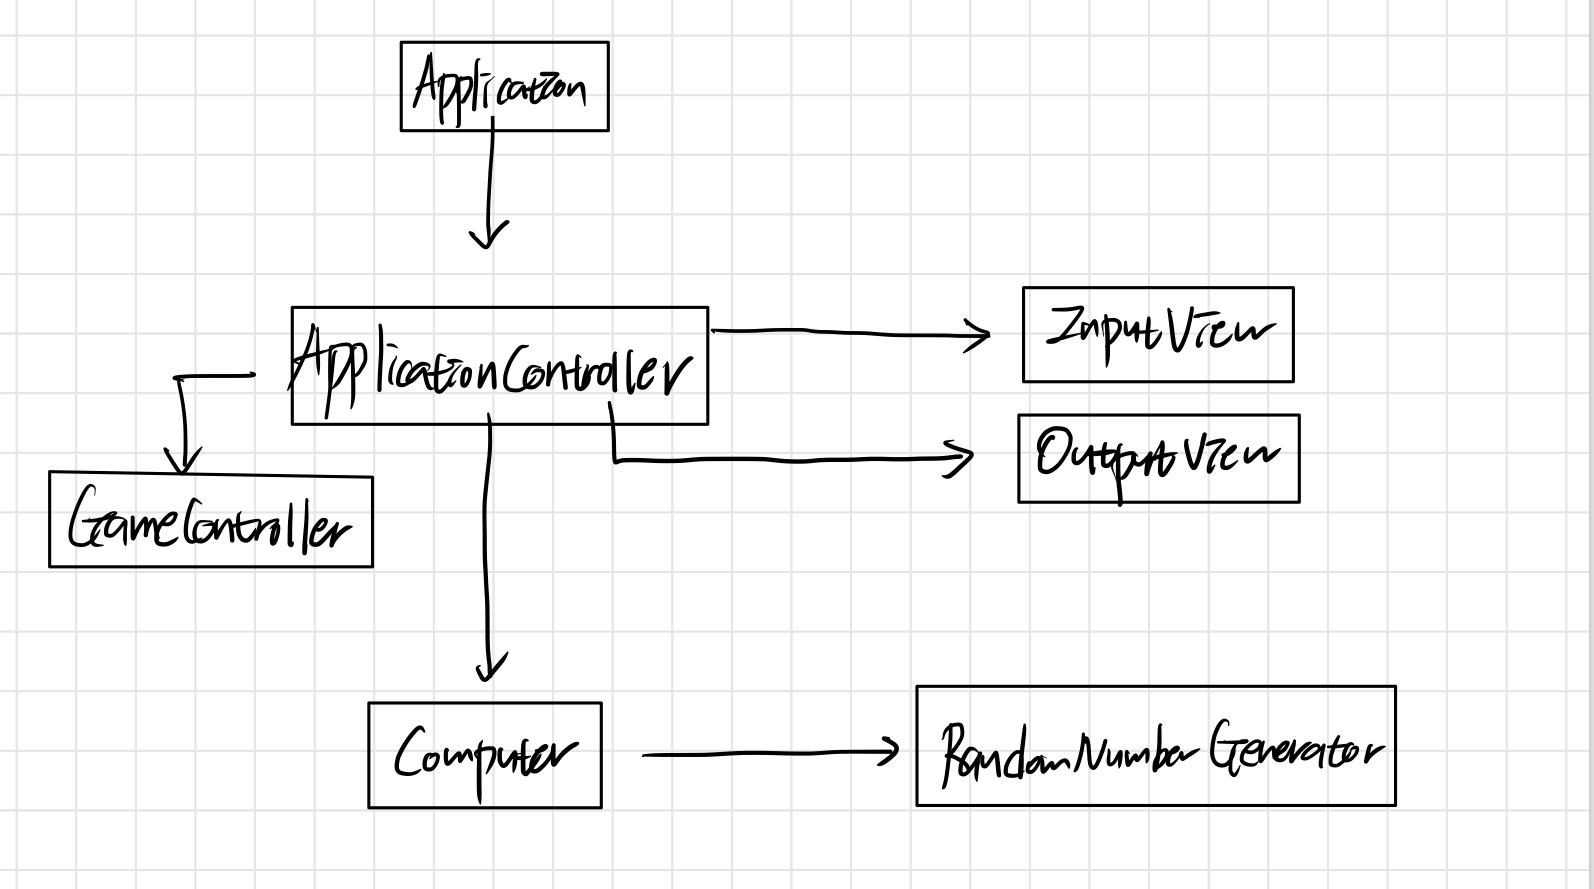 Application
ApplicationController
InputView
OutputView
GameController
Computer
RandomNumberGenerator